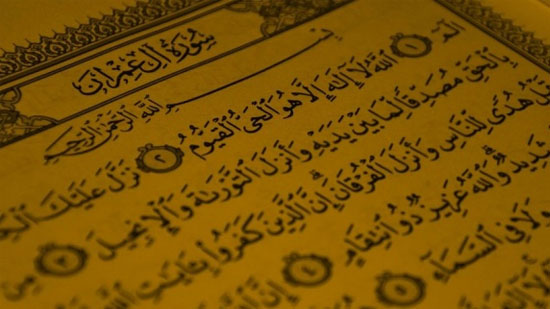 سُورَةُ آلِ عِمْرَانَ
بِسْمِ اللَّهِ الرَّحْمَٰنِ الرَّحِيمِ
الٓمٓ ١ اللَّهُ لَآ إِلَٰهَ إِلَّا هُوَ الْحَىُّ الْقَيُّومُ ٢ نَزَّلَ عَلَيْكَ
بِالْحَقِّ مُصَدِّقًا لِّمَا بَيْنَ يَدَيْهِ وَأَنزَلَ التَّوْرَىٰةَ وَالْإِنجِيلَ ٣ مِن
هُدًى لِّلنَّاسِ وَأَنزَلَ الْفُرْقَانَ ۗ إِنَّ الَّذِينَ كَفَرُوا۟ بِـَٔايَٰتِ اللَّهِ
شَدِيدٌ ۗ وَاللَّهُ عَزِيزٌ ذُو انتِقَامٍ ٤ إِنَّ
وَلَا فِى السَّمَآءِ ٥